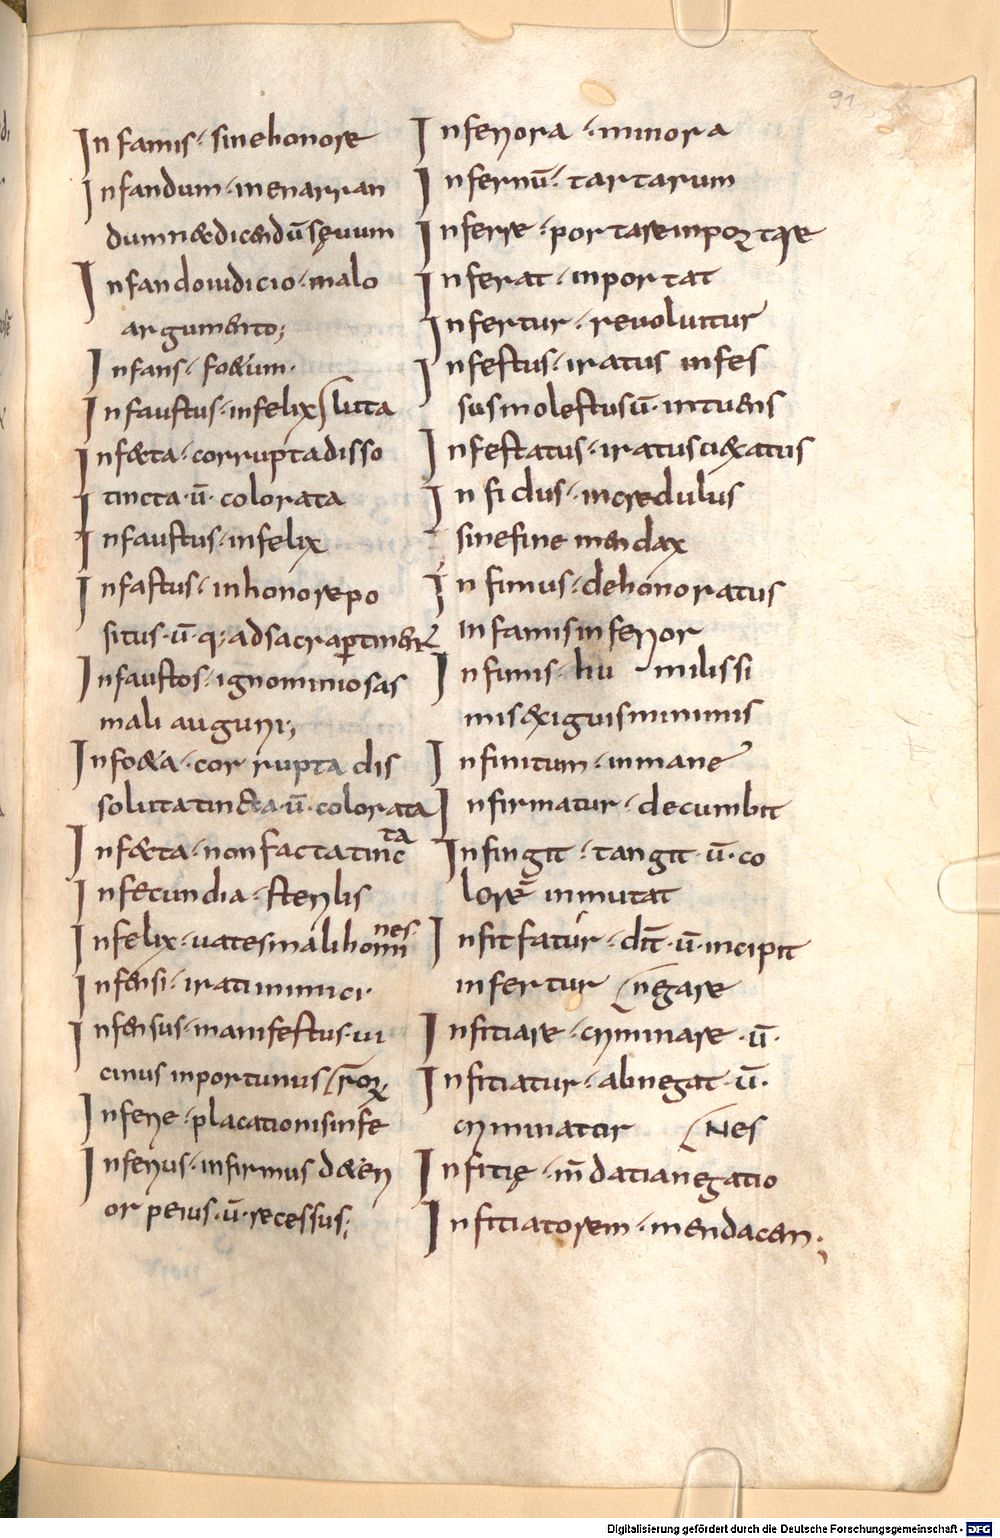 91
Infamis · sine honore
Infandum · inenarran
dum n&dicendū sęuum
Infandoiudicio · malo
argumento;
Infans · foedum ·
Infaustus · infelix / luta
Inf&ta · corrupta disso
tincta · ū · colorata
Infaustus · infelix
Infastus · inhonore po
situs · ū · q; ad sacra ꝑtinent
Infaustos · ignominiosas
mali augurii;
Info&a · corrupta dis
soluta tincta · ū · colorata
Inf&ta · non facta tinc
ta
Infecundia · sterilis
Infelix · uates mali homi
nes ·
Infensi · irati inimici ·
Infensus · manifestus · ui
cinus inportunus / rorꝝ
Inferie · placationis infe
Inferius · infirmus d&eri
or peius · ū · recessus;
Inferiora · minora
Infernū · tartarum
Inferre · portare inportare
Inferat · inportat
Infertur · reuoluitur
Infestus · iratus infes
sus molestus ū · intuens
Infestatus · iratus ci&catus
Infidus · incredulus
sine fine mendax
Infimus · dehonoratus
Infamis inferior
Infimis · hu milissi
mis exiguis minimis
Infinitum · inmane
Infirmatur · decumbit
Infingit · tangit · ū · co
lorē inmutat
Infit fatur · dīt · ū · incipit
infertur / negare
Infitiare · criminare · ū ·
Infitiatur · abnegat · ū ·
criminatur / Nes
Infitię · m̄datia negatio
Infitiatorem · mendacem ·;
Digitalisierung gefördert durch die Deutsche Forschungsgemeinschaft - DFG